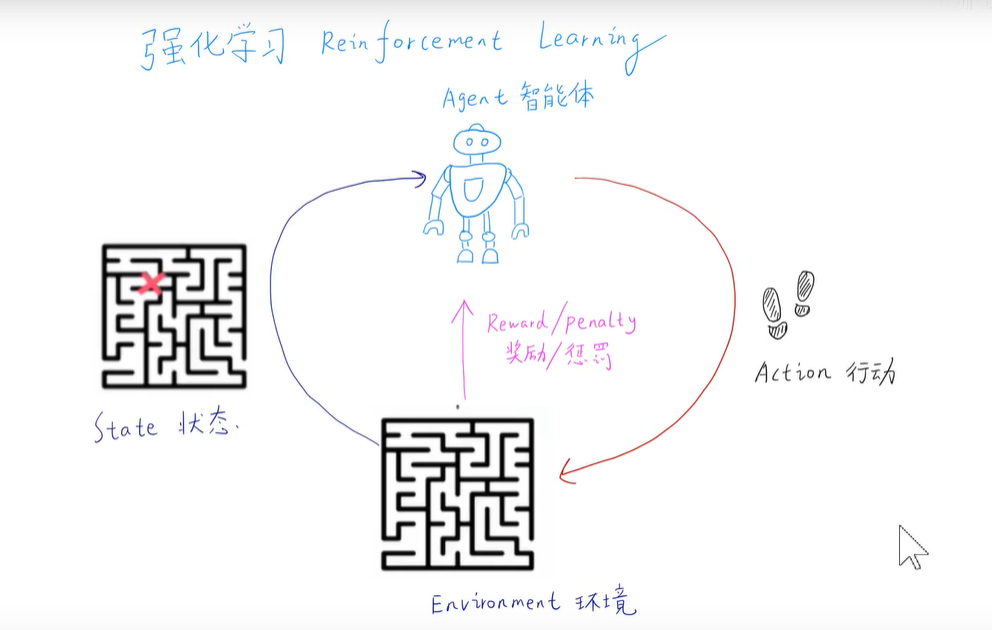 强化学习 Reinforcement Learning
Agent 智能体
Reward/penalty
奖励/惩罚
Action 行动
State 状态.
Environment 环境